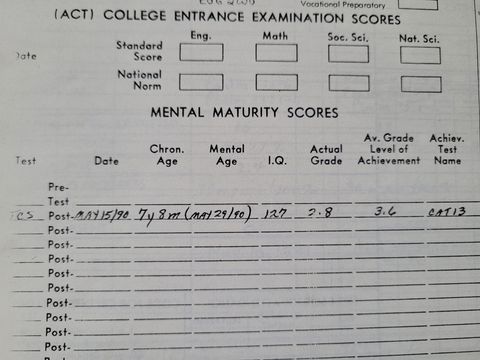 Vocational Preparatory
(ACT) COLLEGE ENTRANCE EXAMINATION SCORES
Eng. Math Soc. Sci. Nat. Sci.
Date Standard Score
National Norm
MENTAL MATURITY SCORES
Test Date Chron. Age Mental Age I.Q. Actual Grade Av. Grade Level of Achievement Achiev. Test Name
Pre-
Test
TCS Post- MAY 15/90 7y 8m (MAY 29/90) 127 2.8 3.6 CAT 13
Post-
Post-
Post-
Post-
Post-
Post-
Post-